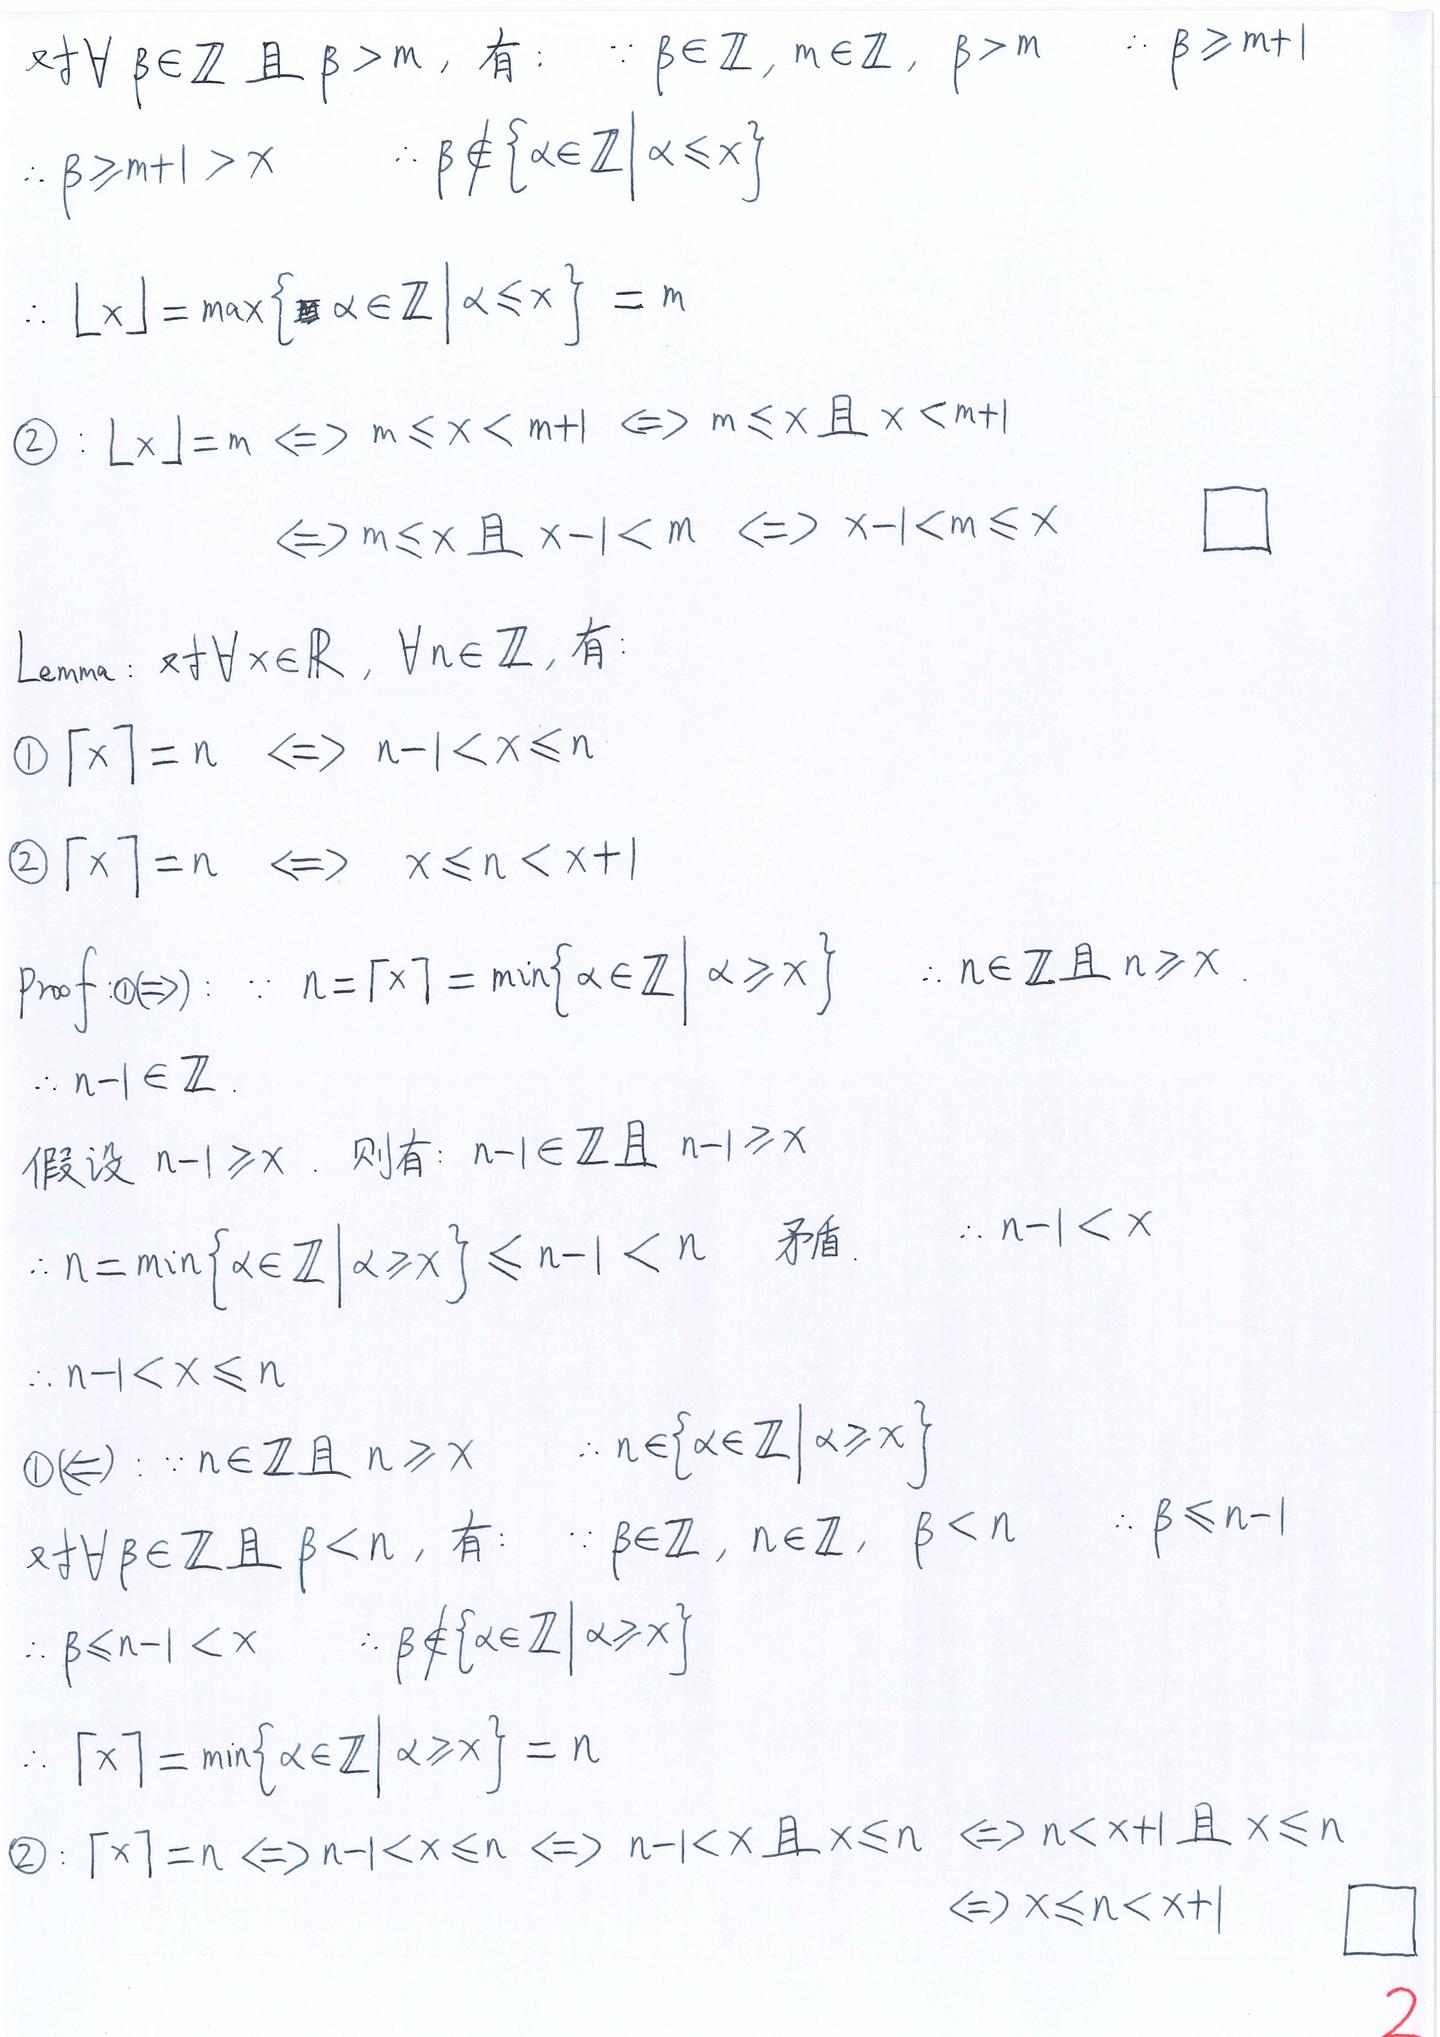 对∀β∈ℤ且β>m，有： ∵β∈ℤ, m∈ℤ, β>m ∴β⩾m+1
∴β⩾m+1>x ∴β∉{α∈ℤ|α⩽x}
∴⌊x⌋=max{α∈ℤ|α⩽x}=m
②：⌊x⌋=m ⇔ m⩽x<m+1 ⇔ m⩽x且x<m+1
⇔ m⩽x且x-1<m ⇔ x-1<m⩽x □
Lemma：对∀x∈ℝ, ∀n∈ℤ, 有：
①⌈x⌉=n ⇔ n-1<x⩽n
②⌈x⌉=n ⇔ x⩽n<x+1
Proof:①(⇒)：∵ n=⌈x⌉=min{α∈ℤ|α⩾x} ∴n∈ℤ且n⩾x.
∴n-1∈ℤ.
假设 n-1⩾x. 则有：n-1∈ℤ且n-1⩾x
∴n=min{α∈ℤ|α⩾x}⩽n-1<n 矛盾. ∴n-1<x
∴n-1<x⩽n
①(⇐)：∵n∈ℤ且n⩾x ∴n∈{α∈ℤ|α⩾x}
对∀β∈ℤ且β<n，有： ∵β∈ℤ, n∈ℤ, β<n ∴β⩽n-1
∴β⩽n-1<x ∴β∉{α∈ℤ|α⩾x}
∴⌈x⌉=min{α∈ℤ|α⩾x}=n
②：⌈x⌉=n ⇔ n-1<x⩽n ⇔ n-1<x且x⩽n ⇔ n<x+1且x⩽n
⇔ x⩽n<x+1 □
2